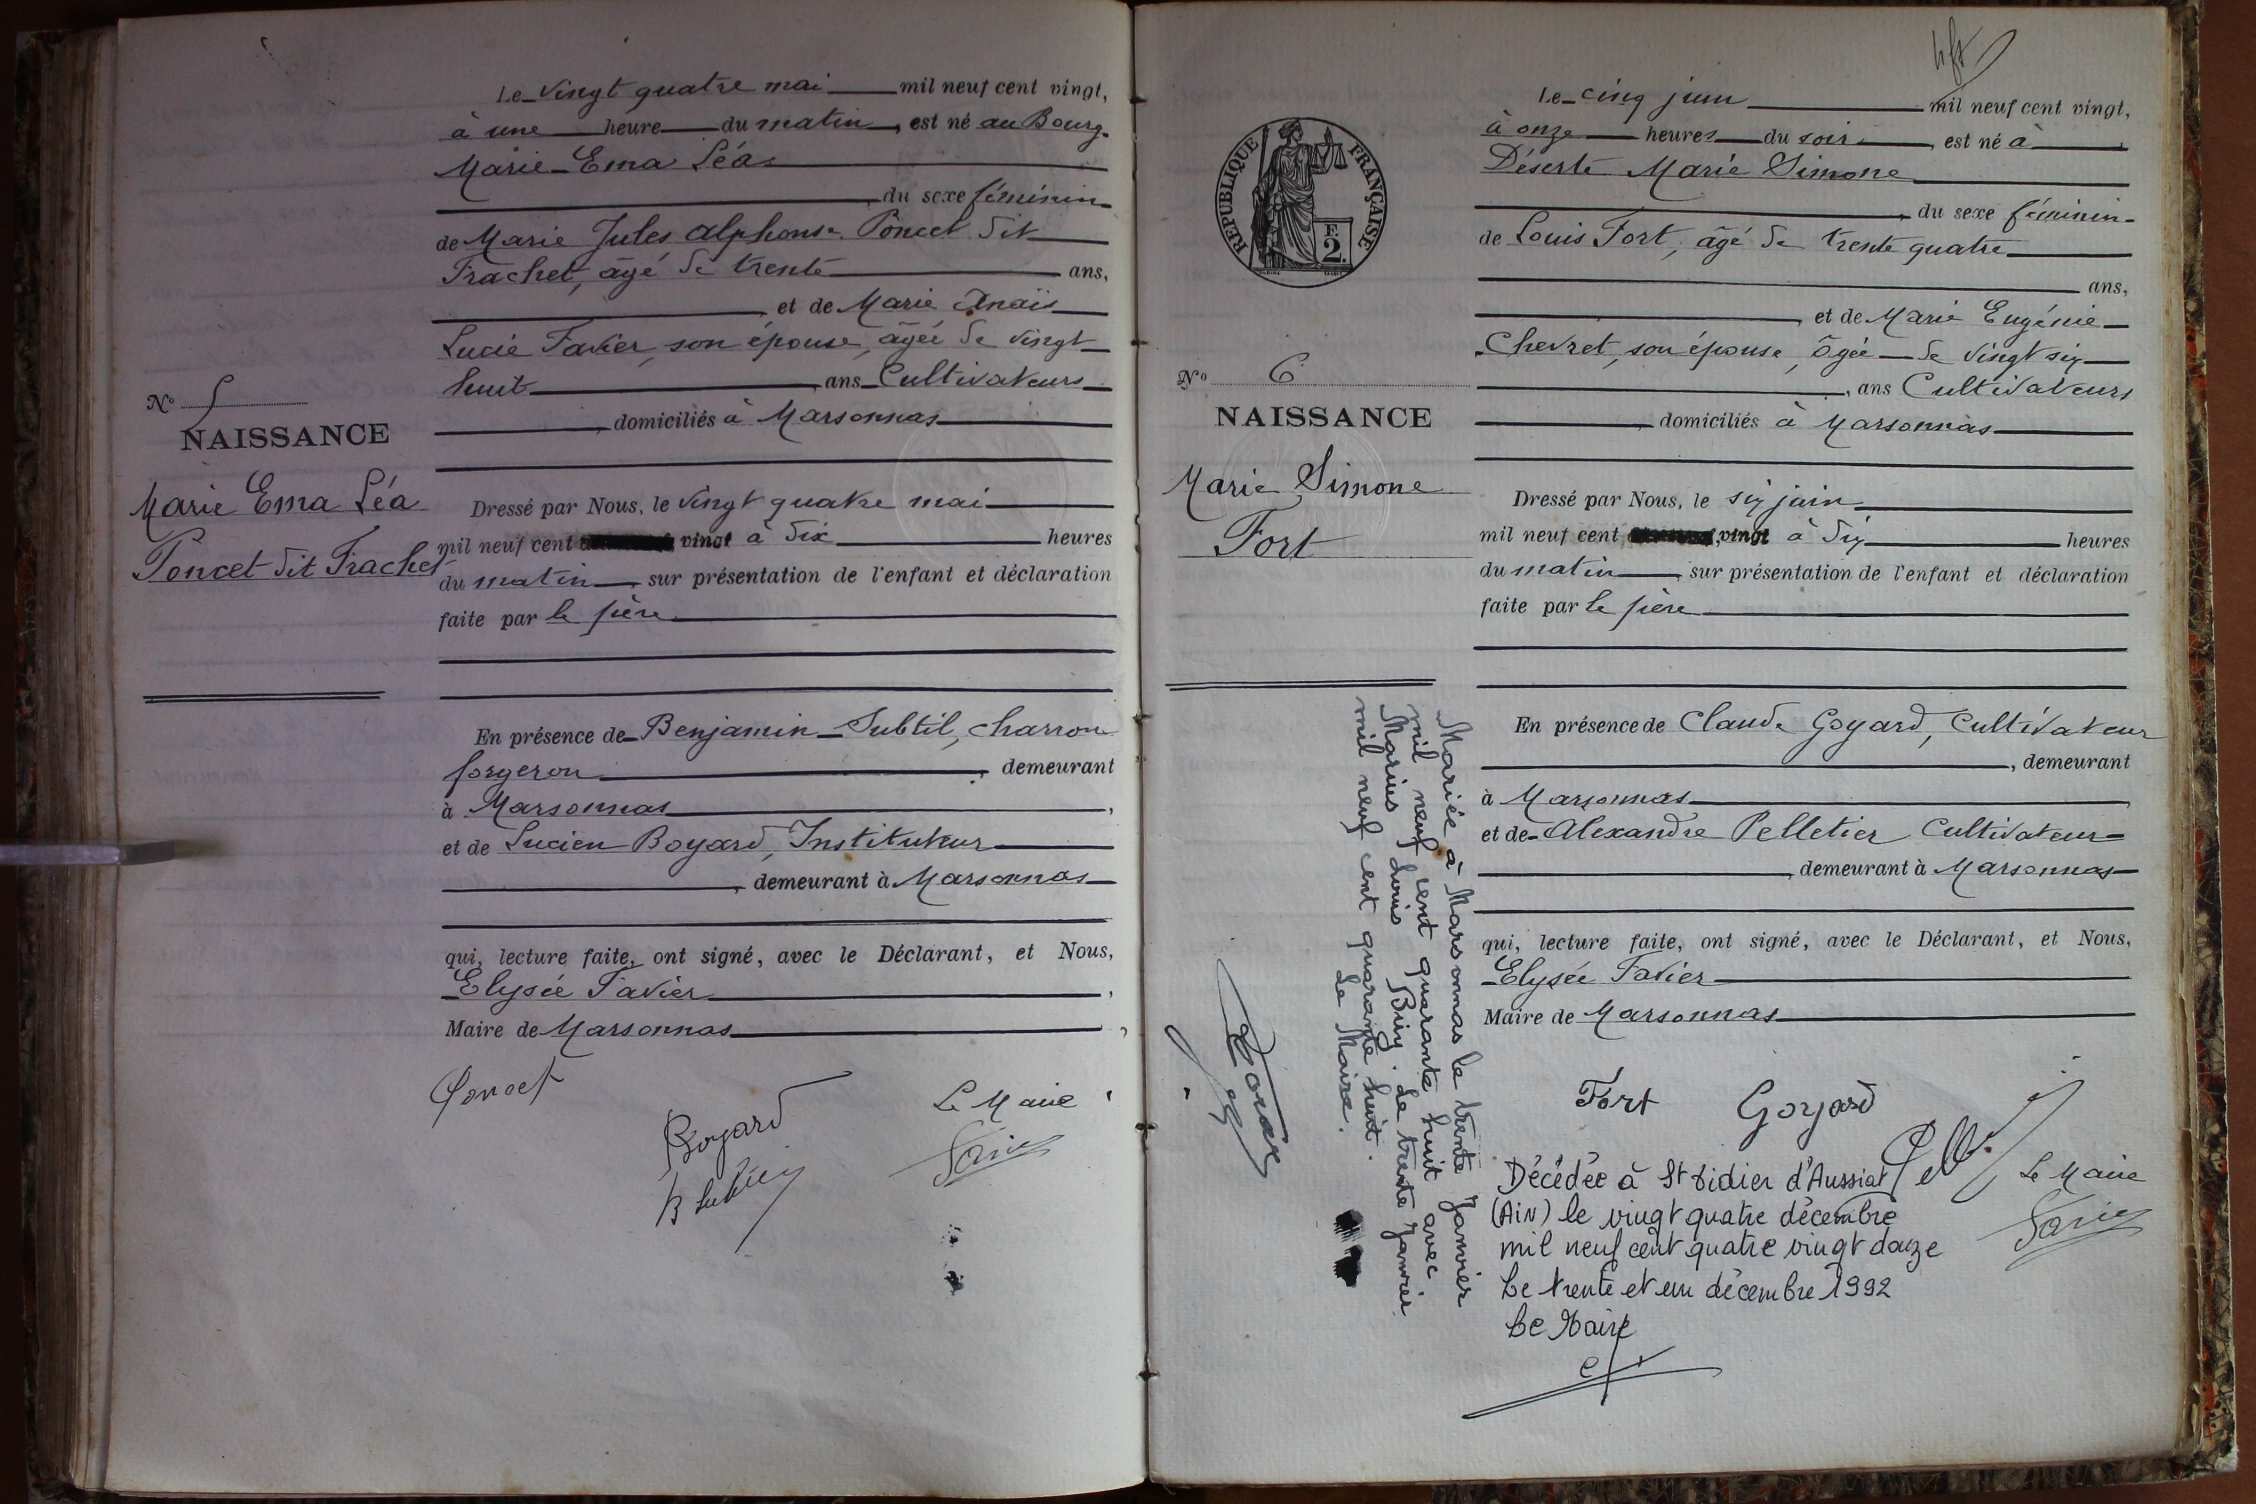 Le vingt quatre mai mil neuf cent vingt,
à une heure du matin, est né au Bourg
Marie Ema Léa
du sexe féminin
de Marie Jules Alphonse Poncet dit
Frachet, âgé de trente ans,
et de Marie Anaïs
Lucie Favier, son épouse, âgée de vingt
huit ans Cultivateurs
domiciliés à Marsonnas
No 5
NAISSANCE
Marie Ema Léa
Poncet dit Frachet
Dressé par Nous, le vingt quatre mai
mil neuf cent vingt à dix heures
du matin, sur présentation de l'enfant et déclaration
faite par le père
En présence de Benjamin Subtil, charron
forgeron, demeurant
à Marsonnas,
et de Lucien Boyard, Instituteur
, demeurant à Marsonnas
qui, lecture faite, ont signé, avec le Déclarant, et Nous,
Elysée Favier,
Maire de Marsonnas,
Poncet
Boyard
B Subtil
Le Maire
Favier
Le cinq juin mil neuf cent vingt,
à onze heures du soir, est né à
Déserte Marie Simone
du sexe féminin
de Louis Fort, âgé de trente quatre
ans,
et de Marie Eugénie
Chevret, son épouse, âgée de vingt six
, ans Cultivateurs
domiciliés à Marsonnas
RÉPUBLIQUE FRANÇAISE
F.
2.
No 6
NAISSANCE
Marie Simone
Fort
Dressé par Nous, le six juin
mil neuf cent vingt à dix heures
du matin, sur présentation de l'enfant et déclaration
faite par le père
En présence de Claude Goyard, Cultivateur
, demeurant
à Marsonnas,
et de Alexandre Pelletier Cultivateur
, demeurant à Marsonnas
qui, lecture faite, ont signé, avec le Déclarant, et Nous,
Elysée Favier
Maire de Marsonnas
Mariée à Marsonnas le trente Janvier
mil neuf cent quarante huit avec
Marius Louis Buiy. Le trente Janvier
mil neuf cent quarante huit.
Le Maire.
Fort
Goyard
Le Maire
Favier
Décédée à St Didier d'Aussiat
(Ain) le vingt quatre décembre
mil neuf cent quatre vingt douze
Le trente et un décembre 1992
Le Maire